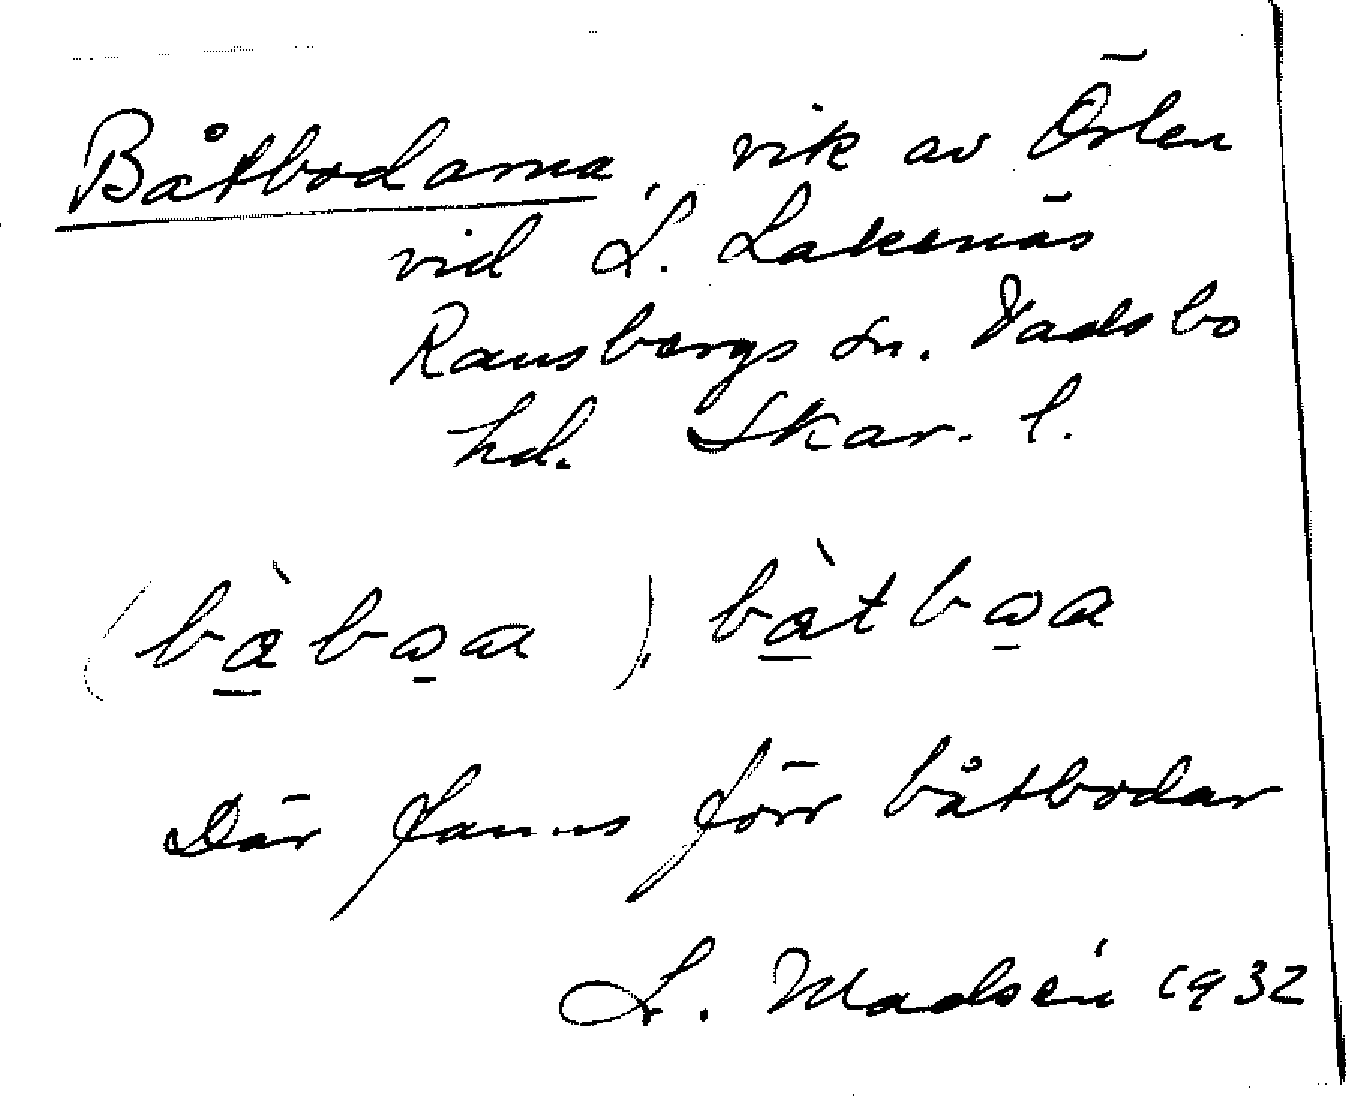 Båtbodarna, vik av Örlen
vid L. Lakenäs
Ransbergs sn. Vadsbo
hd. Skar. l.
(bàbωa), bàtbωa
Där fanns förr båtbodar
L. Madsén 1932